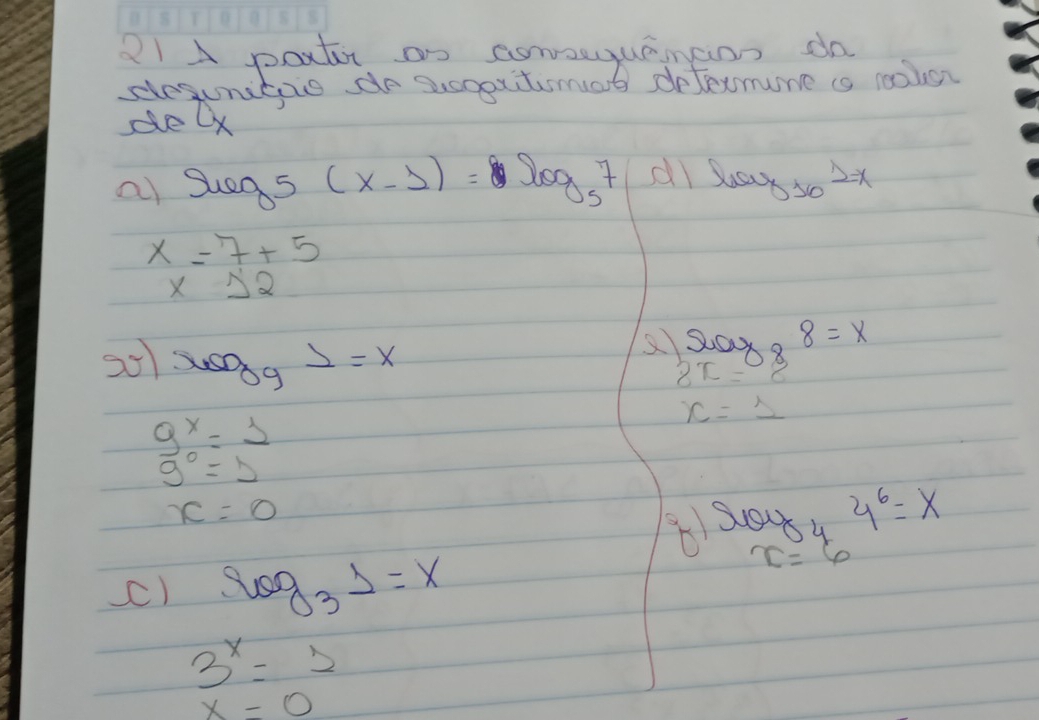 2) A partir as consequências da
definição de logaritimos determine o valor
de x
a) log 5 (x-1) = log₅ 7
x = 7 + 5
x 12
b) log₉ 1 = x
9ˣ = 1
9⁰ = 1
x = 0
c) log₃ 1 = x
3ˣ = 1
x = 0
d) log₁₀ 1=x
e) log₈ 8 = x
8x = 8
x = 1
f) log₄ 4⁶ = x
x = 6